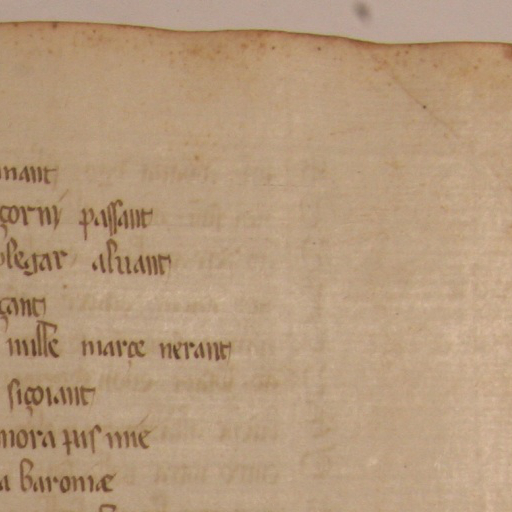 nant
çorni passant
olegar aluant
çant
mille marçe nerant
siçoiant
mora pus mie
a baronie